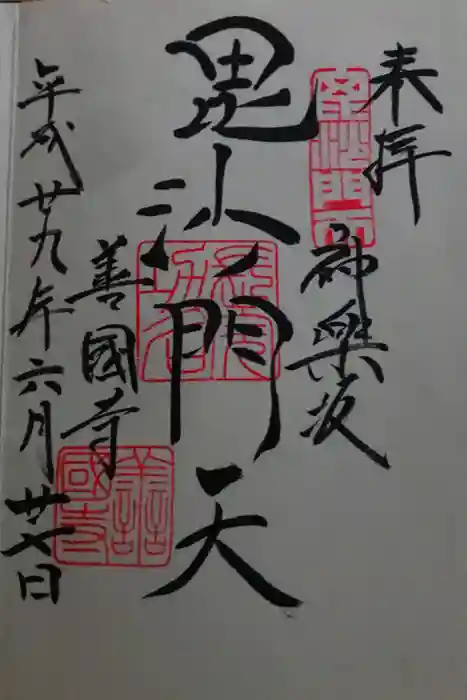 奉拝
神樂坂
毘沙門天
善國寺
平成廿九年六月廿七日
善國寺